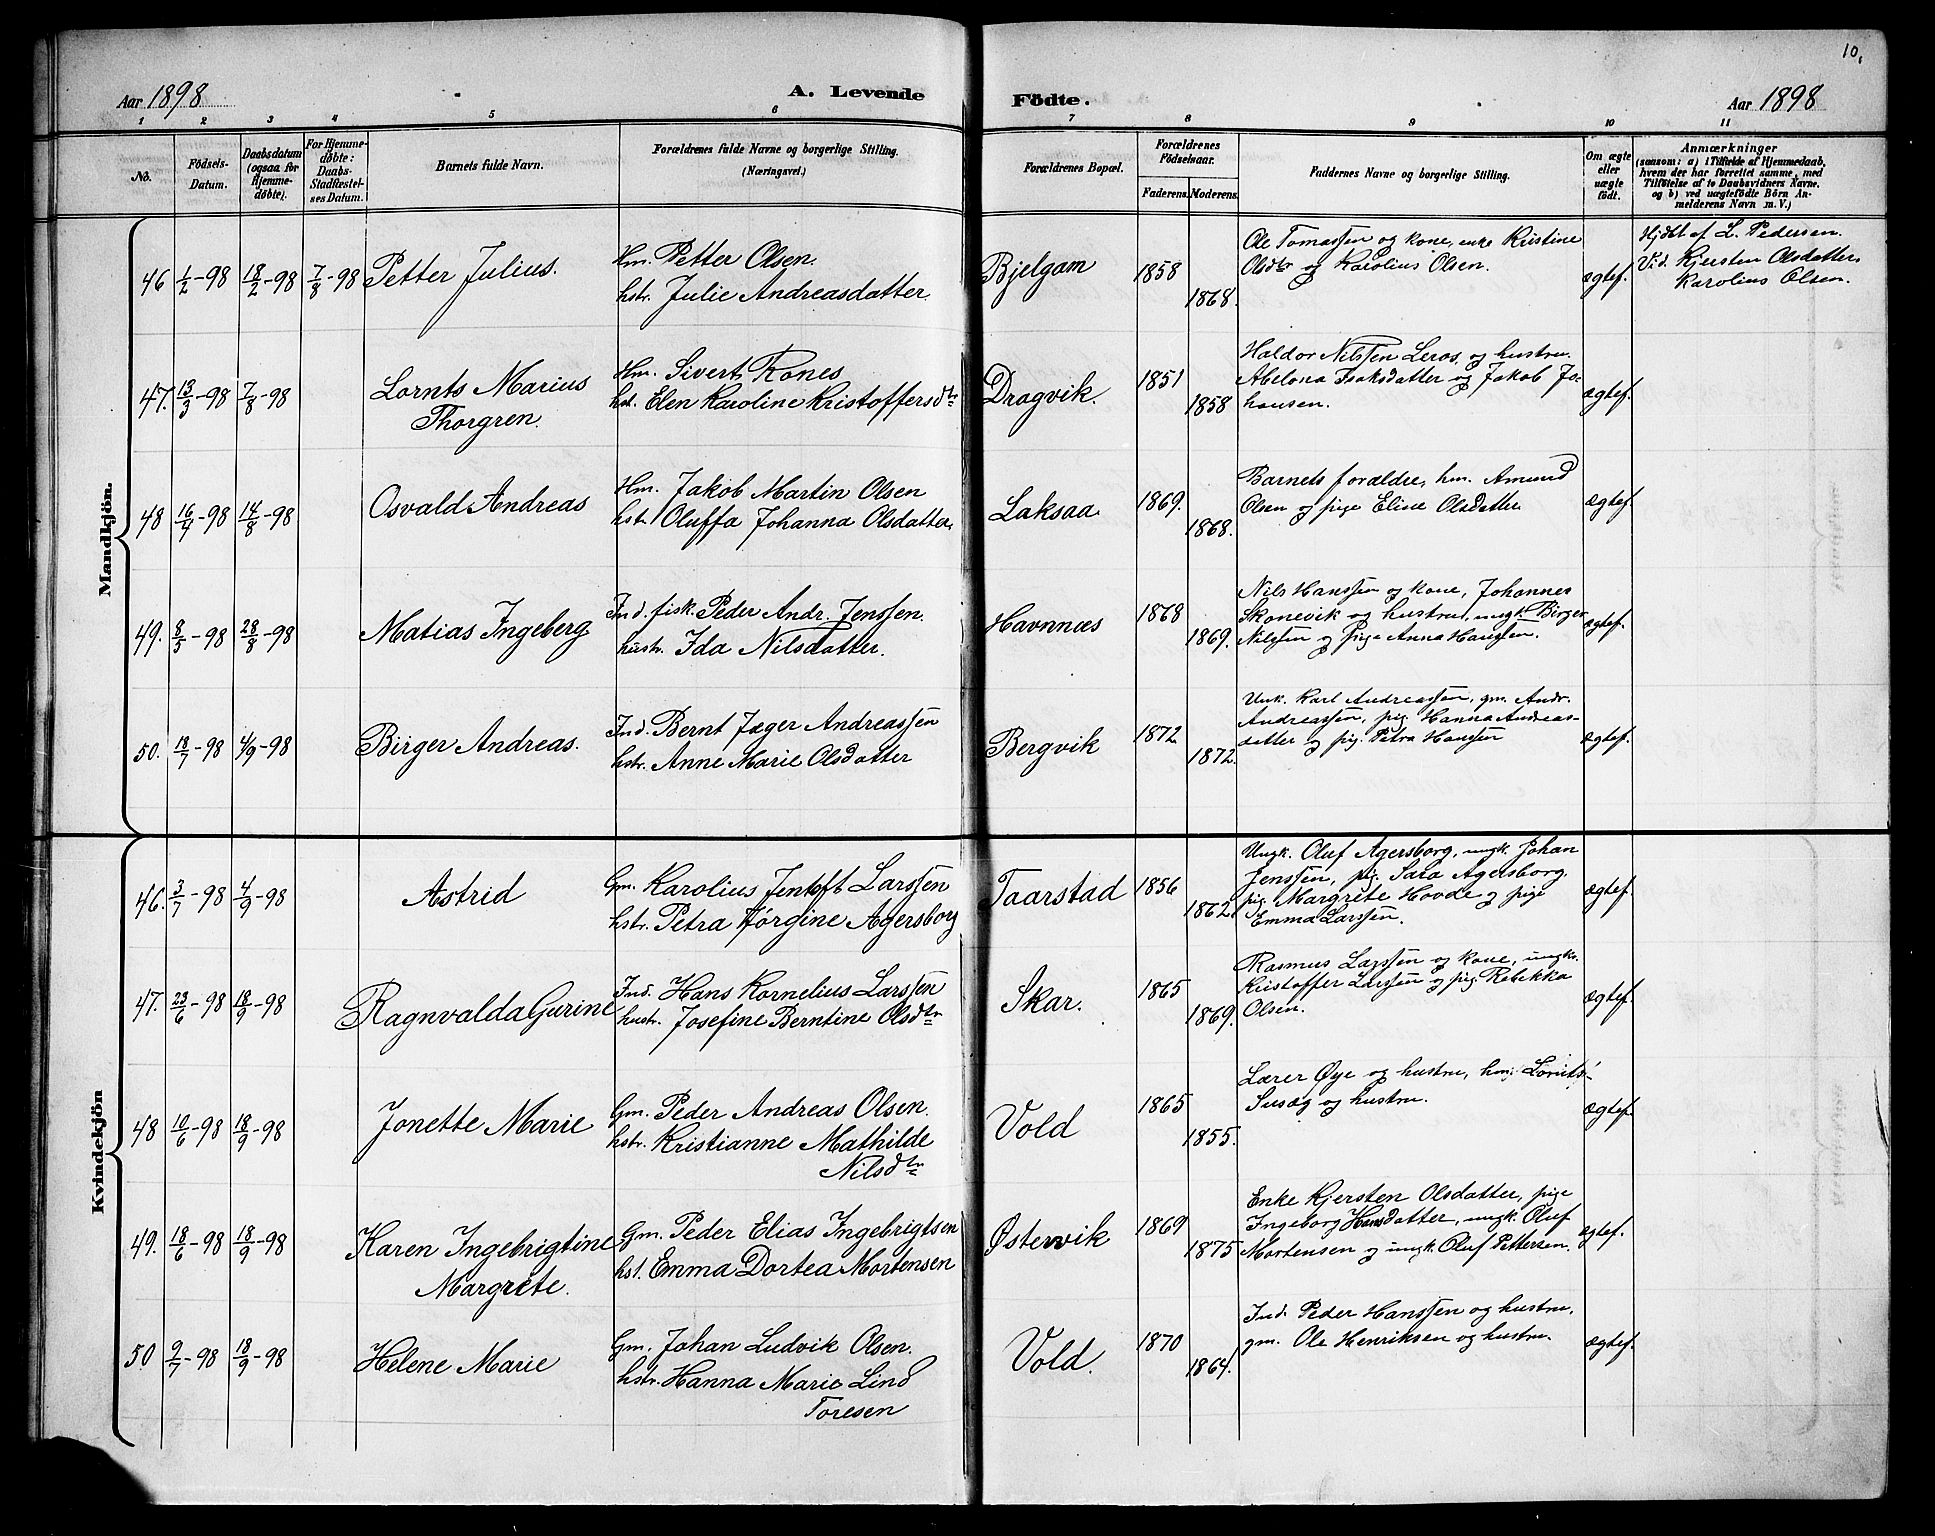 10.
Aar 1898
A. Levende
Födte.
Aar 1898
1 2 3 4 5 6 7 8 9 10 11
No.
Födsels-
Datum.
Daabsdatum
(ogsaa for
Hjemme-
döbte).
For Hjemme-
döbte:
Daabs-
Stadfæstel-
ses Datum.
Barnets fulde Navn.
Forældrenes fulde Navne og borgerlige Stilling.
(Næringsvei.)
Forældrenes Bopæl.
Forældrenes
Födselsaar.
Faderens.
Moderens.
Faddernes Navne og borgerlige Stilling.
Om ægte
eller
uægte
födt.
Anmærkninger
(saasom: a) i Tilfælde af Hjemmedaab,
hvem der har forrettet samme, med
Tilföielse af to Daabsvidners Navne.
og b) ved uægtefödte Börn An-
melderens Navn m. V.)
Mandkjön.
46 1/2-98 18/2-98 7/8-98 Petter Julius.
Hm. Petter Olsen.
hstr. Julie Andreasdatter.
Bjelgam
1858
1868.
Ole Tomassen og kone, enke Kristine
Olsdtr og Karolius Olsen.
ægtef.
Hjdbt af L. Pedersen.
Vid. Kjersten Olsdatter,
Karolius Olsen.
47. 13/3-98 7/8-98 Lornts Marius
Thorgren.
Hm. Sivert Rones
hst. Elen Karoline Kristoffersdtr
Dragvik.
1851
1858
Haldor Nilssen Leros, og hustru.
Abelona Isaksdatter og Jakob Jo-
hansen.
ægtef.
48 16/4-98 14/8-98 Osvald Andreas
Hm. Jakob Martin Olsen
hstr. Oluffa Johanna Olsdatter
Laksaa
1869.
1868.
Barnets forældre, hm. Amund
Olsen og pige Eline Olsdatter
ægtef.
49. 8/5-98 28/8-98 Matias Ingeberg
Ind. fisk. Peder Andr. Jenssen.
hustr. Ida Nilsdatter.
Havnnæs
1868
1869.
Nils Hanssen og kone, Johannes
Skonevik og hustru, ungk. Birger
Nilssen og pige Anna Hanssen.
ægtef.
50. 18/7-98 4/9-98 Birger Andreas.
Ind. Bernt Jæger Andreassen
hstr. Anne Marie Olsdatter
Bergvik
1872
1872.
Unk. Karl Andreassen, gm. Andr.
Andreassen, pig. Hanna Andreas-
datter og pig. Petra Hanssen
ægtef.
Kvindekjön
46. 3/7-98 4/9-98 Astrid
Gm. Karolius Jentoft Larssen
hstr. Petra Jörgine Agersborg
Taarstad
1856
1862.
Ungk. Oluf Agersborg, ungk. Johan
Jenssen, pig. Sara Agersborg,
pig. Margrete Hovde og pige
Emma Larssen.
ægtef.
47. 23/6-98 18/9-98 Ragnvalda Gurine
Ind. Hans Kornelius Larssen
hustr. Josefine Berntine Olsdtr
Skar.
1865
1869.
Rasmus Larssen og kone, ungk.
Kristoffer Larssen og pig. Rebekka
Olsen.
ægtef.
48 10/6-98 18/9-98 Jonette Marie
Gm. Peder Andreas Olsen.
hstr. Kristianne Mathilde
Nilsdtr
Vold
1865
1855.
Lærer Øye og hustru, hm.
og hustru.
ægtef.
49. 18/6-98 18/9-98 Karen Ingebrigtine
Margrete.
Gm. Peder Elias Ingebrigtsen
hst. Emma Dortea Mortensen
Østervik
1869
1875
Enke Kjersten Olsdatter, pige
Ingeborg Hansdatter, ungk. Oluf
Mortensen og ungk. Oluf Pettersen.
ægtef.
50 9/7-98 18/9-98 Helene Marie
Gm. Johan Ludvik Olsen.
hstr. Hanna Marie Lind
Toresen
Vold.
1870
1864.
Ind. Peder Hanssen og hustru,
gm. Ole Henriksen og hustru.
ægtef.